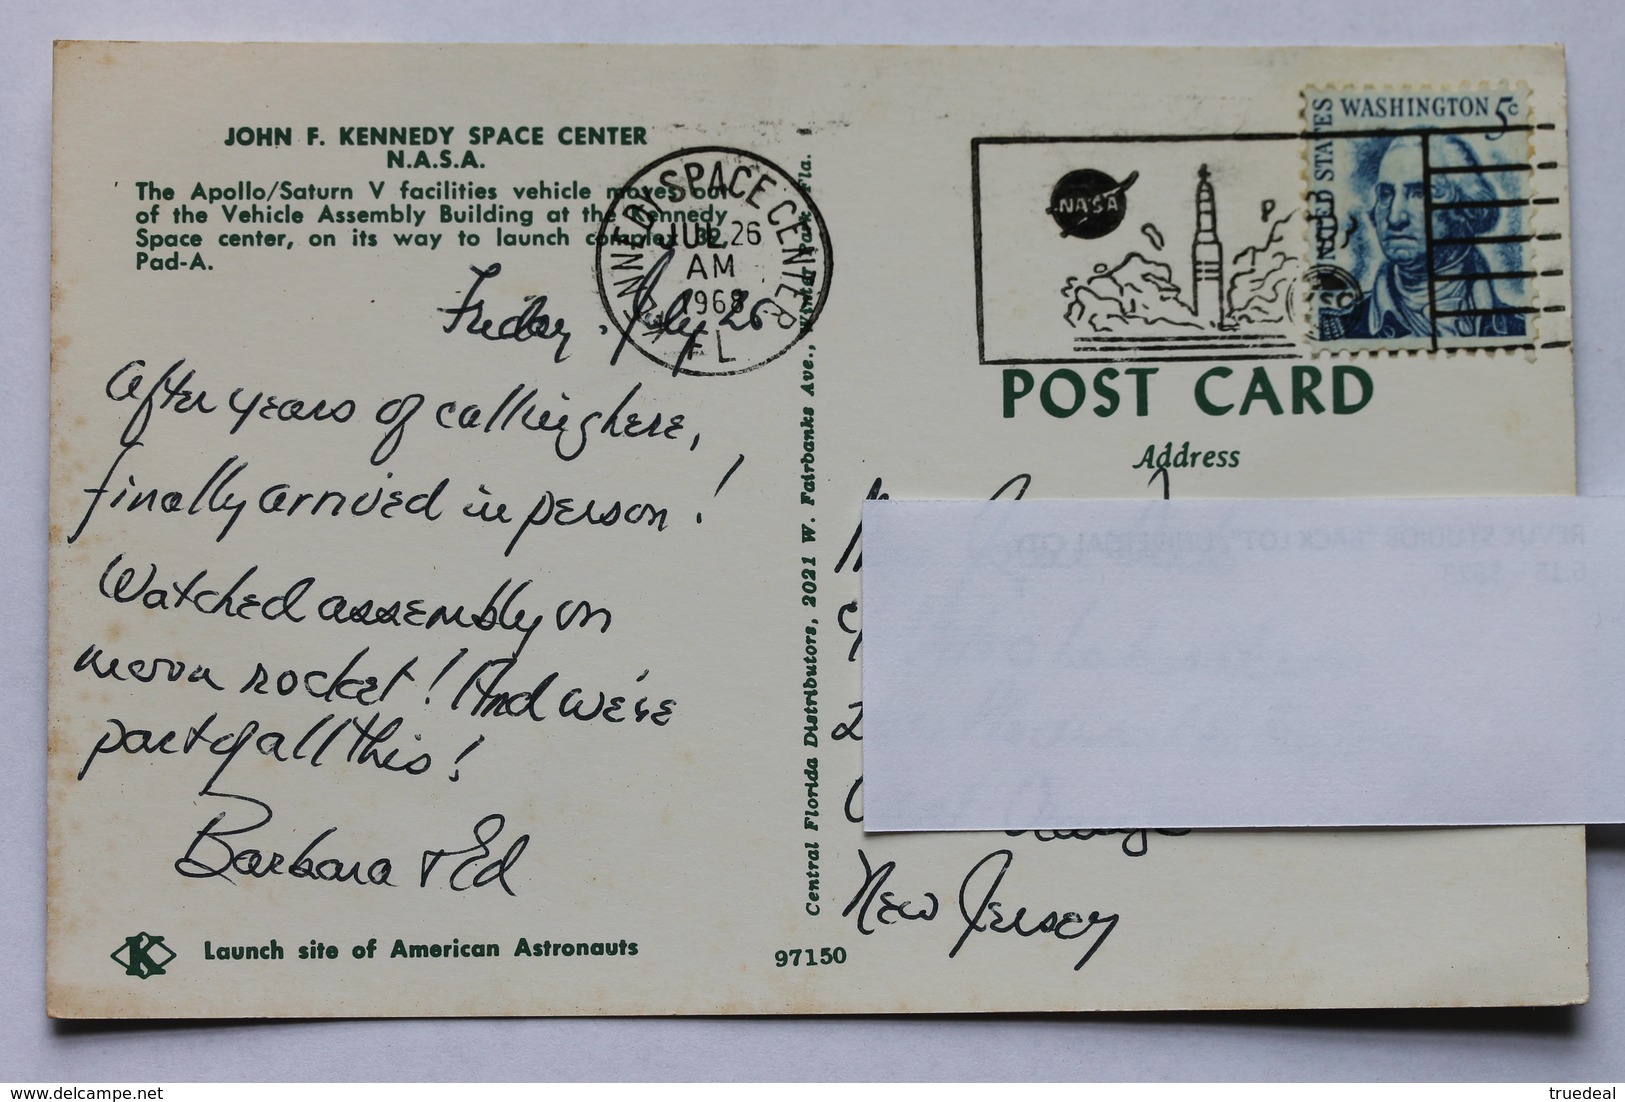 JOHN F. KENNEDY SPACE CENTER
N.A.S.A.
The Apollo/Saturn V facilities vehicle moves out
of the Vehicle Assembly Building at the Kennedy
Space center, on its way to launch complex 32,
Pad-A.
KENNEDY SPACE CENTER
JUL 26
AM
1968
FL
Friday, July 26
After years of calling here,
finally arrived in person!
Watched assembly on
moon rocket! And we're
part of all this!
Barbara & Ed
Launch site of American Astronauts
K
97150
Central Florida Distributors, 2021 W. Fairbanks Ave., Winter Park, Fla.
NASA
UNITED STATES
WASHINGTON 5c
POST CARD
Address
New Jersey
REVUE STUDIOS "BACK LOT" UNIVERSAL CITY
truedeal